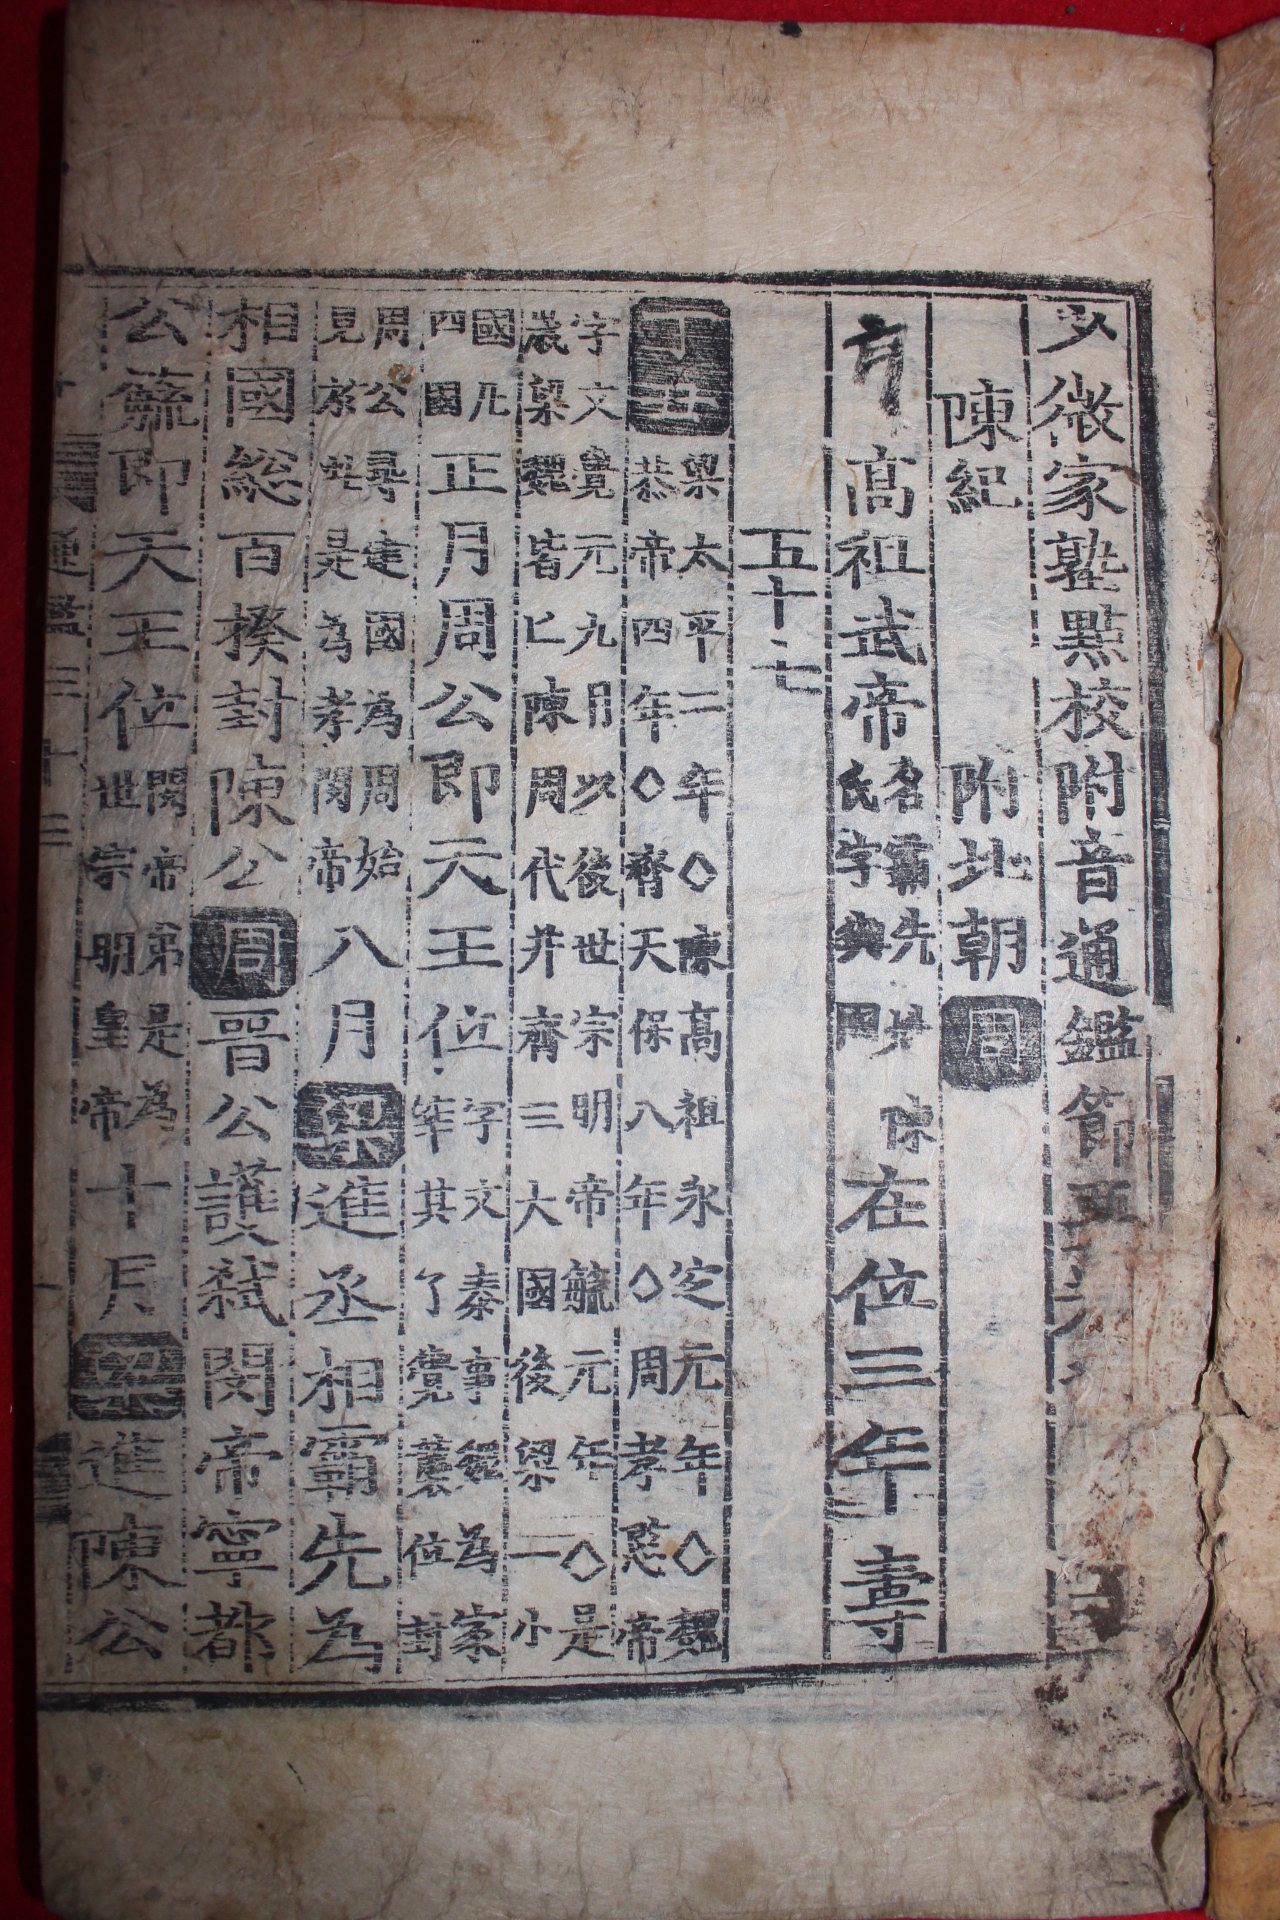 少微家塾點校附音通鑑節要
陳紀 附北朝 周
高祖武帝 名霸先姓陳氏字興國 在位三年壽
五十七
丁丑 梁太平二年◇陳高祖永定元年◇魏恭帝四年◇齊天保八年◇周孝愍帝
宇文覺元九月以後世宗明帝毓元年◇是歲梁魏皆亡陳周代并齊三大國後梁一小
國凡四國 正月周公即天王位 宇文泰事魏為冢宰其子覺襲位封
周公尋建國為周始見於此是為孝閔帝 八月 梁 進丞相霸先為
相國總百揆封陳公 周 晉公護弒閔帝寧都
公毓即天王位 閔帝弟是為世宗明皇帝 十月 梁 進陳公
通鑑三十三